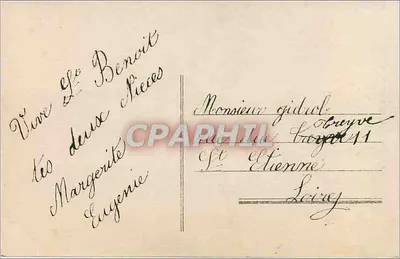 Vive St Benoit
tes deux Nieces
Margerite
Eugenie
Monsieur gidrol
Treyve
rue du 11
St Etienne
Loire
CPAPHIL